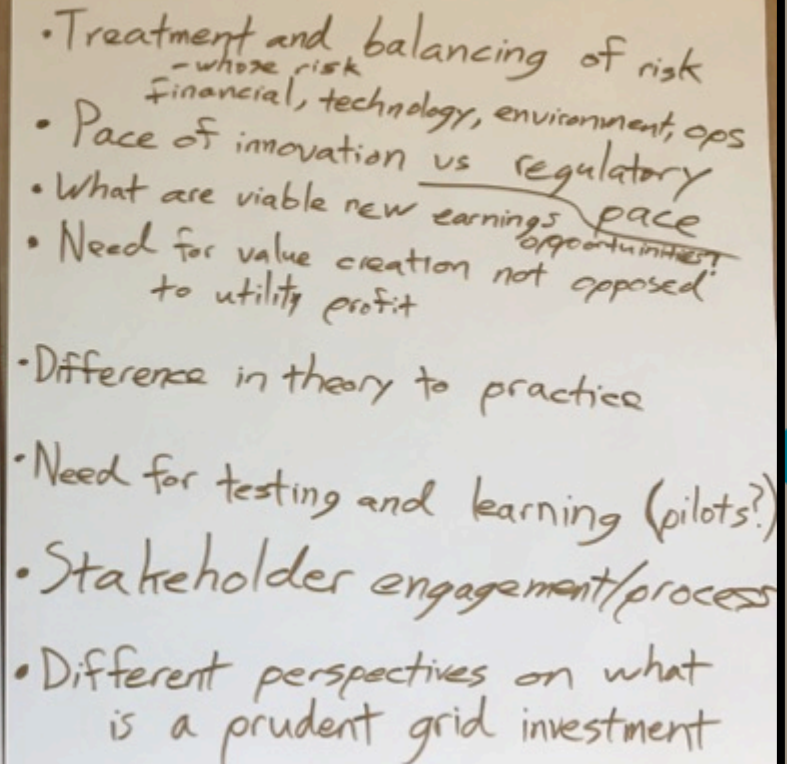 • Treatment and balancing of risk
- whose risk
financial, technology, environment, ops
• Pace of innovation vs regulatory
pace
• What are viable new earnings
opportuinities?
• Need for value creation not opposed
to utility profit
• Difference in theory to practice
• Need for testing and learning (pilots?)
• Stakeholder engagement/process
• Different perspectives on what
is a prudent grid investment